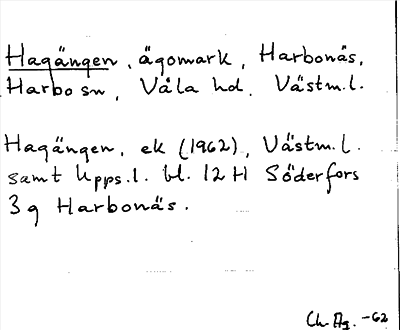 Hagängen, ägomark, Harbonäs,
Harbo sn, Våla hd. Västm.l.
Hagängen, ek (1962), Västm.l.
samt Upps.l. bl. 12 H Söderfors
3 g Harbonäs.
Ch. Ag. -62